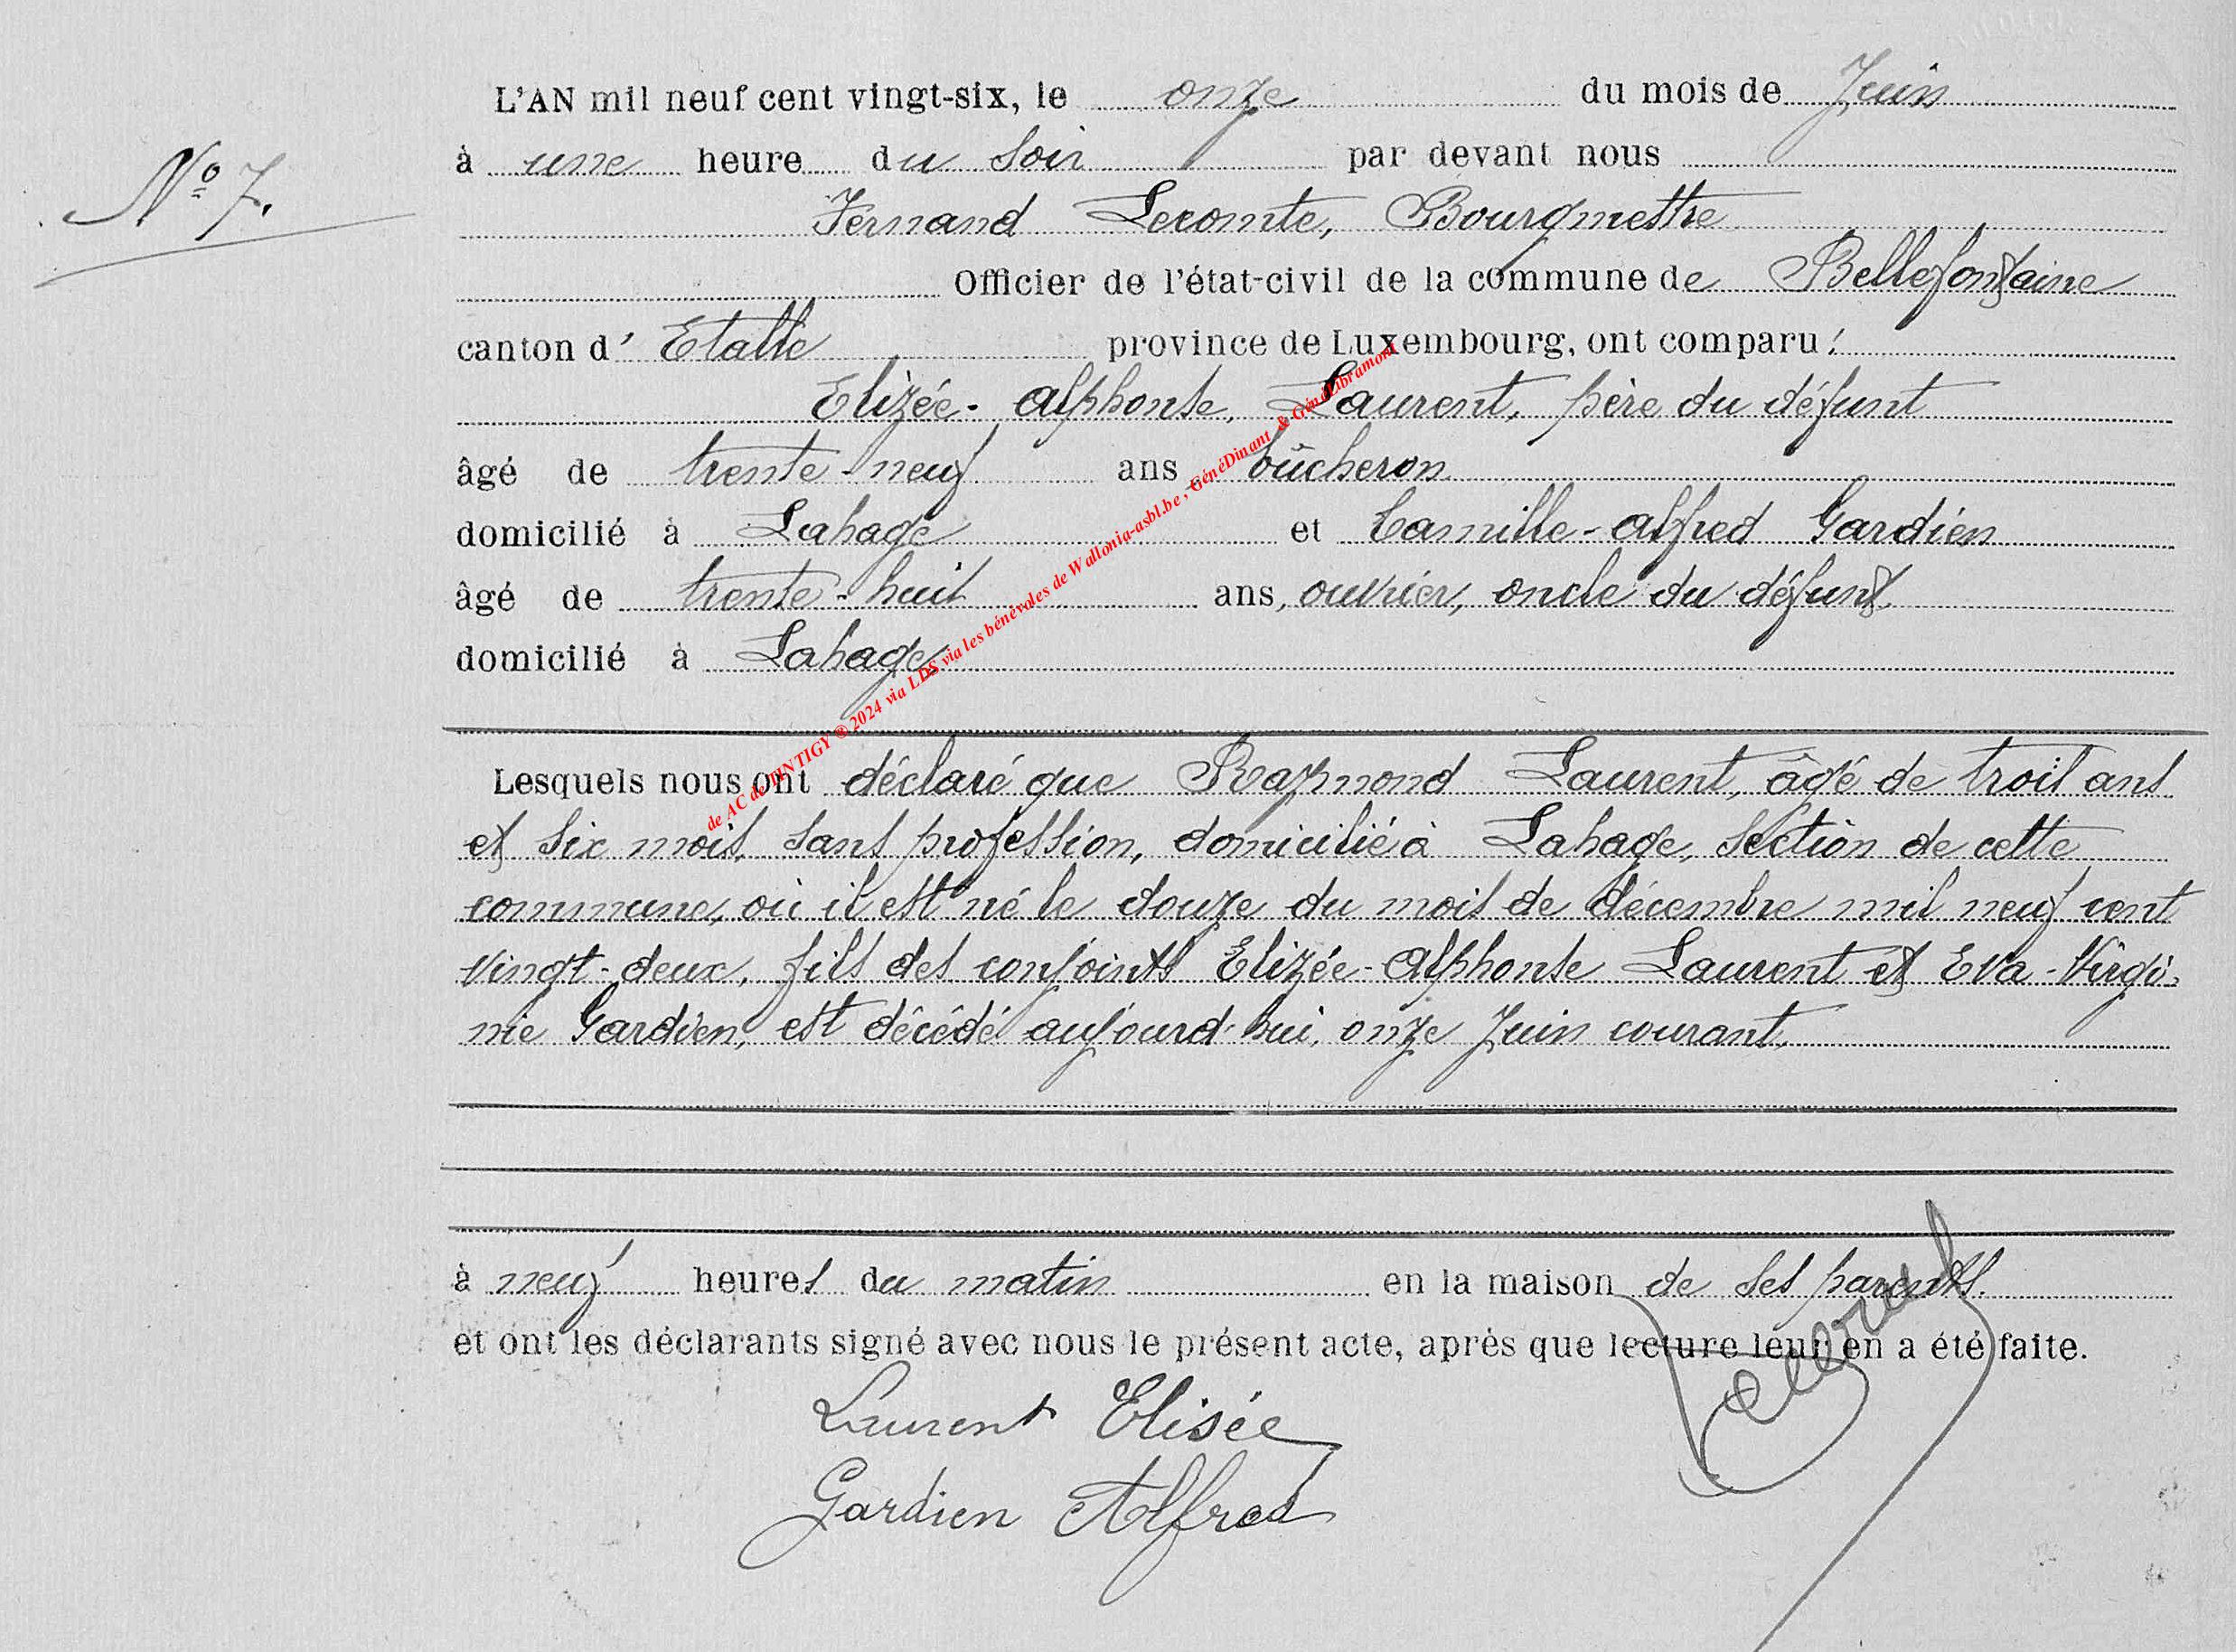 L'AN mil neuf cent vingt-six, le onze du mois de Juin
N° 7.
à une heure du soir par devant nous
Fernand Lecomte, Bourgmestre
Officier de l'état-civil de la commune de Bellefontaine
canton d' Etalle province de Luxembourg, ont comparu :
Elizée-Alphonse, Laurent, père du défunt
âgé de trente-neuf ans, bûcheron
domicilié à Lahage et Camille-Alfred Gardien
âgé de trente-huit ans, ouvrier, oncle du défunt,
domicilié à Lahage
de AC de TINTIGY ® 2024 via LDS via les bénévoles de Wallonia-asbl.be , GénéDinant & GénéLibramont
Lesquels nous ont déclaré que Raymond Laurent, âgé de trois ans
et six mois, sans profession, domicilié à Lahage, section de cette
commune, où il est né le douze du mois de décembre mil neuf cent
vingt-deux, fils des conjoints Elizée-Alphonse Laurent et Eva-Virgi-
nie Gardien, est décédé aujourd'hui, onze Juin courant,
à neuf heures du matin en la maison de ses parents.
et ont les déclarants signé avec nous le présent acte, après que lecture leur en a été faite.
Laurent Elisée
Gardien Alfred